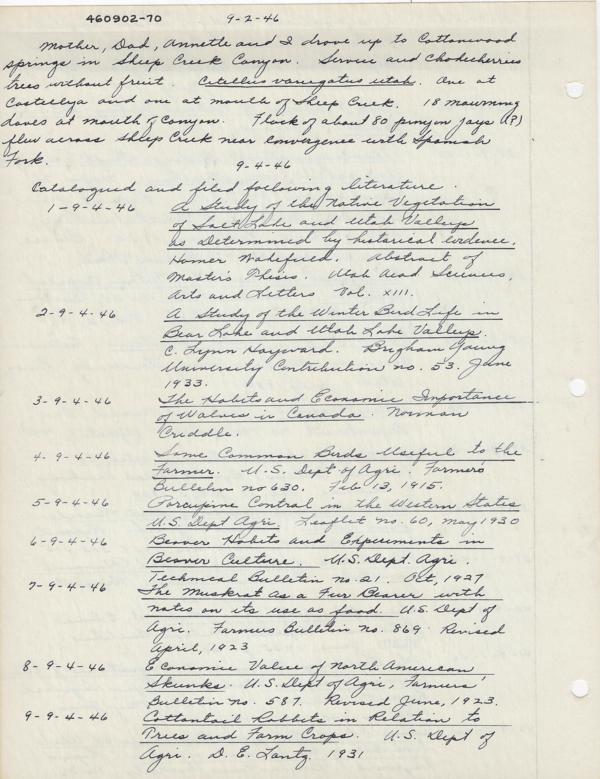 460902-70 9-2-46
Mother, Dad, Annette and I drove up to Cottonwood
springs in Sheep Creek Canyon. Service and Chokecherries
trees without fruit. Citellus variegatus utah. One at
Castellya and one at mouth of Sheep Creek. 18 mourning
doves at mouth of Canyon. Flock of about 80 pinyon jays (?)
flew across Sheep Creek near convergence with Spanish
Fork.
9-4-46
Catalogued and filed following literature.
1-9-4-46 A Study of the Native Vegetation
of Salt Lake and Utah Valleys
as determined by historical evidence.
Homer Wakefield. Abstract of
Master's Thesis. Utah Acad Sciences,
Arts and Letters Vol. XIII.
2-9-4-46 A Study of the Winter Bird Life in
Bear Lake and Utah Lake Valleys.
C. Lynn Hayward. Brigham Young
University Contribution no. 53. June
1933.
3-9-4-46 The Habits and Economic Importance
of Wolves in Canada. Norman
Criddle.
4-9-4-46 Some Common Birds Useful to the
Farmer. U.S. Dept of Agri. Farmers'
Bulletin no 630. Feb 13, 1915.
5-9-4-46 Porcupine Control in the Western States
U.S. Dept Agri. Leaflet no. 60, May 1930
6-9-4-46 Beaver Habits and Experiments in
Beaver Culture. U.S. Dept. Agri.
Technical Bulletin no. 21. Oct, 1927
7-9-4-46 The Muskrat as a Fur Bearer with
notes on its use as food. U.S. Dept of
Agri. Farmers Bulletin no. 869 Revised
April, 1923
8-9-4-46 Economic Value of North American
Skunks. U.S. Dept of Agri, Farmers'
Bulletin no. 587. Revised June, 1923.
9-9-4-46 Cottontail Rabbits in Relation to
Trees and Farm Crops. U.S. Dept of
Agri. D. E. Lantz. 1931